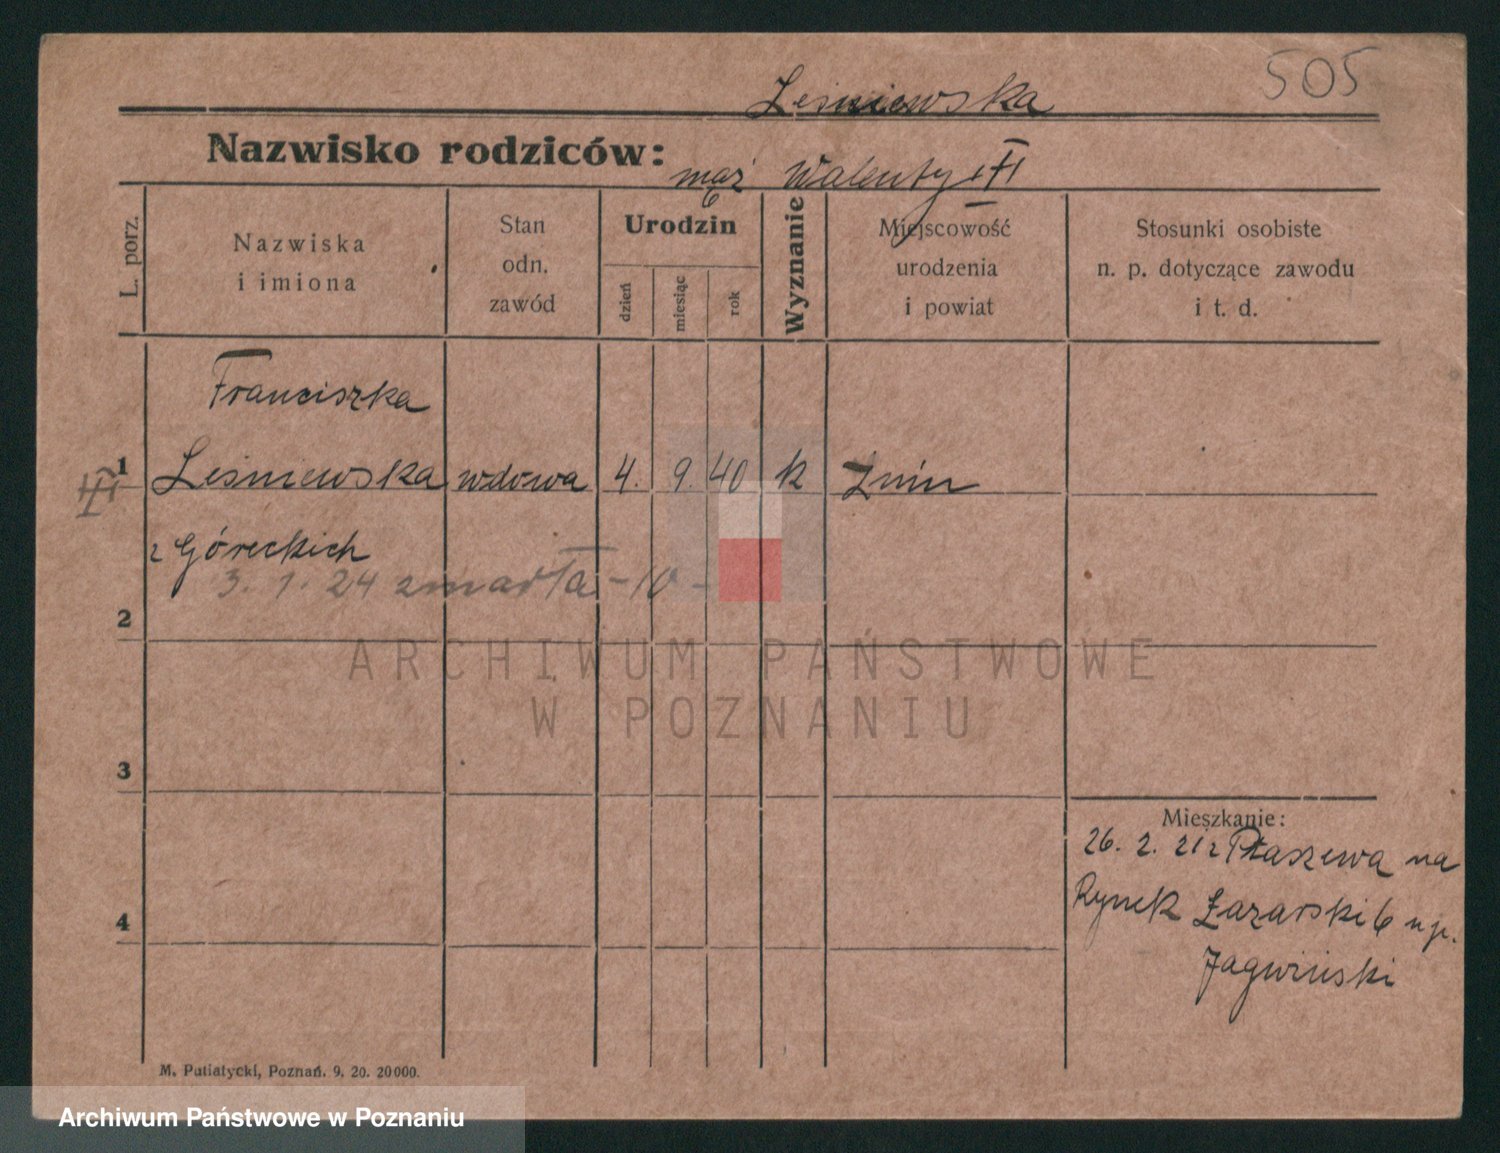 505
Leśniewska
Nazwisko rodziców:
mąż Walenty
L. porz.
Nazwiska
i imiona
Stan
odn.
zawód
Urodzin
dzień
miesiąc
rok
Wyznanie
Miejscowość
urodzenia
i powiat
Stosunki osobiste
n. p. dotyczące zawodu
i t. d.
Franciszka
1 Leśniewska wdowa 4. 9. 40 k Żnin
z Góreckich
3. 1. 24 zmarła -10-
2
ARCHIWUM PAŃSTWOWE
W POZNANIU
3
Mieszkanie:
26. 2. 21 z Ptaszewa na
Rynek Łazarski 6 u p.
4
Jagwiński
M. Putiatycki, Poznań. 9. 20. 20000.
Archiwum Państwowe w Poznaniu